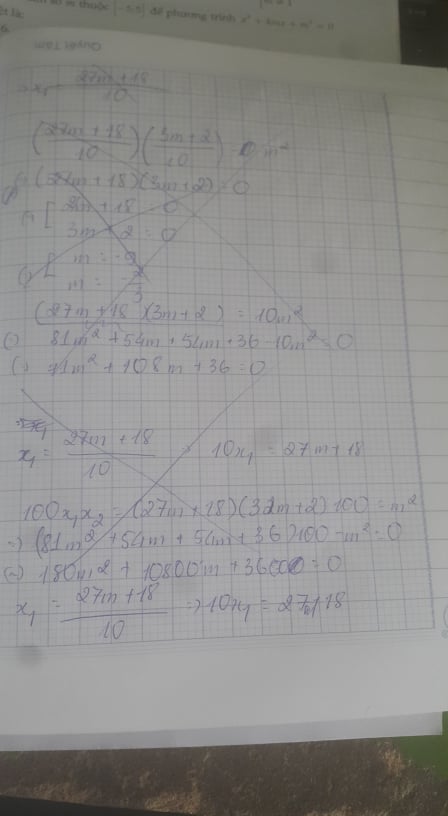 thuộc [-5;5] để phương trình
Quyết Tâm
27m+18
10
(27m+18 / 10)(3m+2 / 10) = 0 m²
(27m+18)(3m+2) = 0
[ 27m+18 = 0
3m+2 = 0
[ m = -9
m = -2/3
(27m+18)(3m+2) = 10m²
(-) 81m² + 54m + 54m + 36 - 10m² = 0
(-) 71m² + 108m + 36 = 0
x₁ = 27m+18 / 10 ⇒ 10x₁ = 27m+18
100x₁x₂ = (27m+18)(3m+2) 100 = m²
⇒ (81m² + 54m + 54m + 36)100 - m² = 0
(-) 180m² + 10800m + 36000 = 0
x₁ = 27m+18 / 10 ⇒ 10x₁ = 27m+18